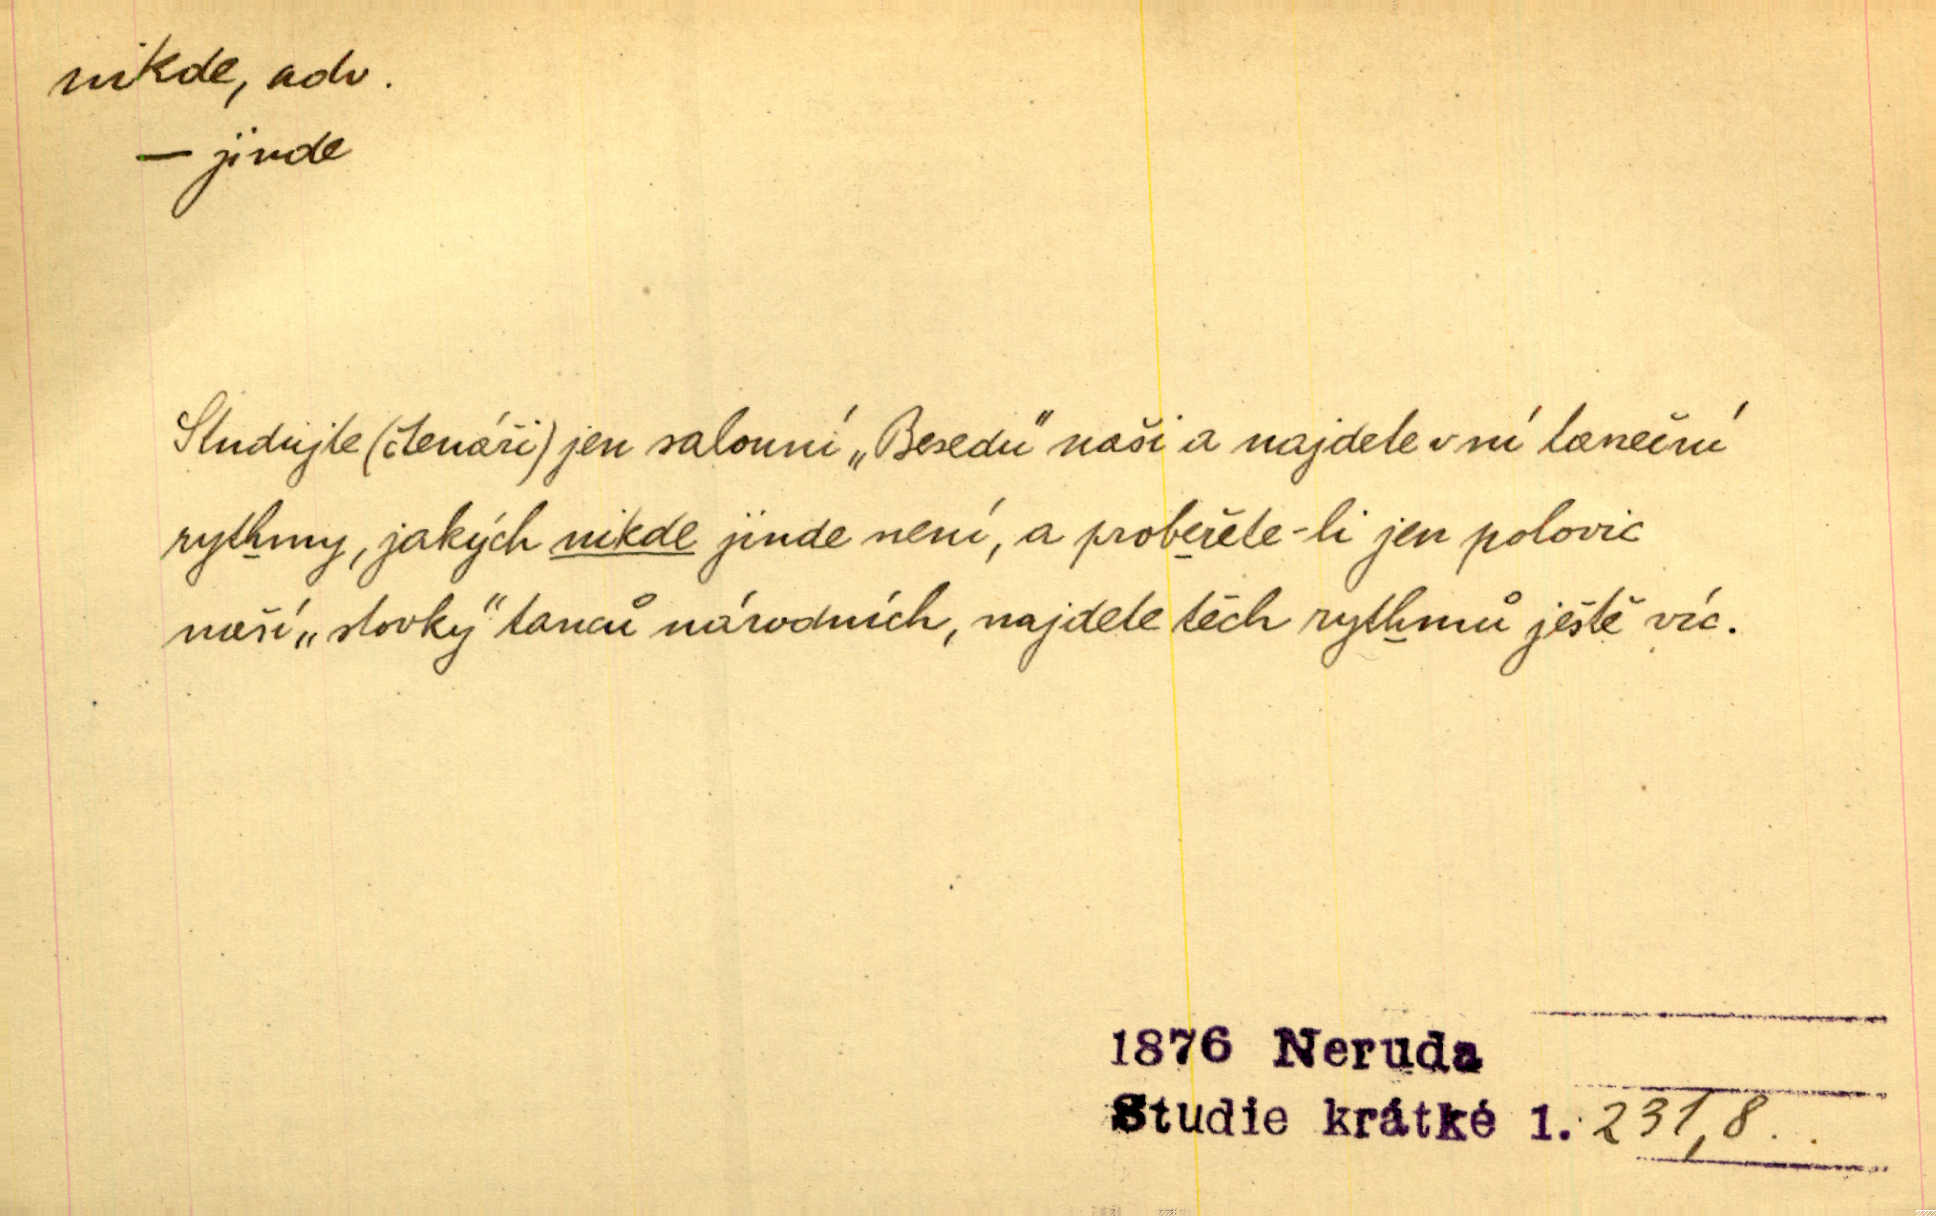 nikde, adv.
— jinde
Studujte (čtenáři) jen salonní „Besedu" naši a najdete v ní taneční
rythmy, jakých nikde jinde není, a probeřete-li jen polovic
naší „stovky" tanců národních, najdete těch rythmů ještě víc.
1876 Neruda
Studie krátké 1. 231,8..